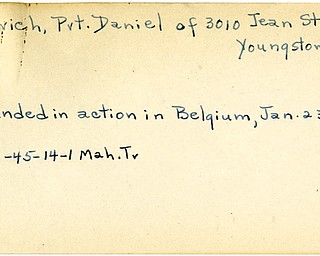 rich, Pvt. Daniel of 3010 Jean St
Youngstow
nded in action in Belgium, Jan. 23
-45-14-1 Mah. Tv